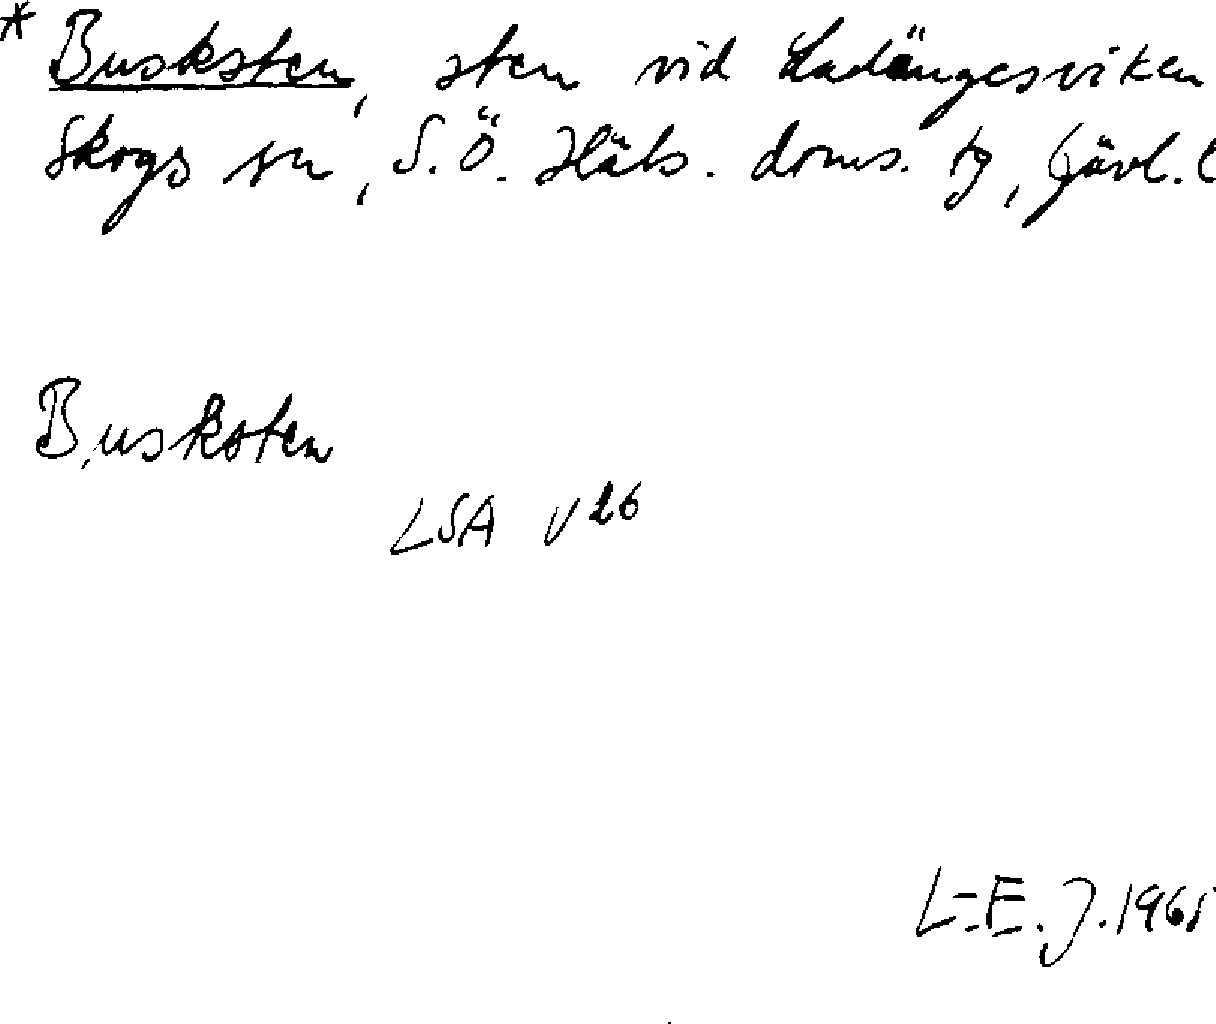 * Busksten, sten vid Ladängesviken
Skogs sn, S.Ö. Häls. doms. tg, Gävl. l
Busksten
LSA V26
L-E. J. 1965